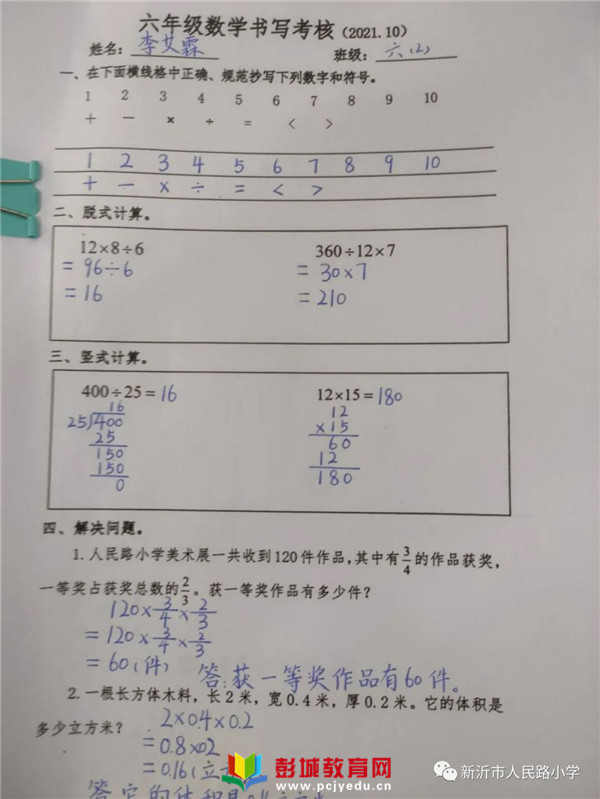 六年级数学书写考核（2021.10）
姓名：李艾霖 班级：六(1)
一、在下面横线格中正确、规范抄写下列数字和符号。
1 2 3 4 5 6 7 8 9 10
＋ － × ÷ ＝ ＜ ＞
1 2 3 4 5 6 7 8 9 10
+ − × ÷ = < >
二、脱式计算。
12×8÷6 360÷12×7
= 96÷6 = 30×7
= 16 = 210
三、竖式计算。
400÷25=16 12×15=180
16 12
25)400 ×15
25 60
150 12
150 180
0
四、解决问题。
1.人民路小学美术展一共收到120件作品，其中有3/4的作品获奖，
一等奖占获奖总数的2/3。获一等奖作品有多少件？
120×3/4×2/3
= 120×3/4×2/3
= 60(件) 答:获一等奖作品有60件。
2.一根长方体木料，长2米，宽0.4米，厚0.2米。它的体积是
多少立方米？ 2×0.4×0.2
= 0.8×02
= 0.16(立
答它的体积是
彭城教育网
www.pcjyedu.cn
新沂市人民路小学